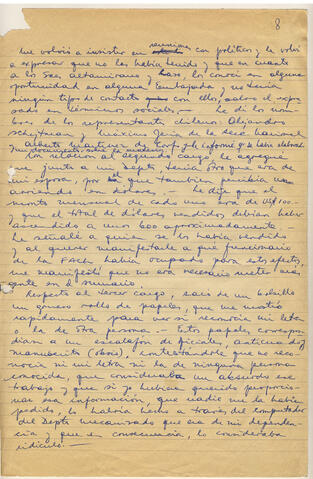 8
me volvió a insistir en reuniones con políticos y le volví
a expresar que no las había tenido y que en cuanto
a los Sres Altamirano y los conocí en alguna
oportunidad en alguna Embajada y no tenía
ningún tipo de contacto con ellos, salvo el expre
sado en términos sociales. — Le di los nom
bres de los representantes chilenos: Alejandro
y Máximo de la Sec. Nacional
Alberto Martínez de Corfo
Con relación al segundo cargo, le agregué
que junto a un Depto tenía otro que era de
mi esposa, por que también percibía una
en dólares, — le dije que el
monto mensual de cada uno era de US$100.—
y que el total de dólares vendidos, debían haber
ascendido a unos 600 aproximadamente.
Le señalé a quien se los había vendido
al querer manifestarle a que funcionario
de la FACH había ocupado para estos efectos,
me manifestó que no era necesario meter más
gente en el sumario.
Respecto al tercer cargo, sacó de un bolsillo
un grueso rollo de papeles, que me mostró
rápidamente para ver si reconocía mi letra
o la de otra persona. — Estos papeles correspon
dían a un escalafón de oficiales, anticuado y
manuscrito, contestándole que no reco
nocía ni mi letra ni la de ninguna persona
conocida, que consideraba un absurdo ese
trabajo y que si yo hubiera querido proporcio
nar esa información, que nadie me la había
pedido, lo habría hecho a través del computador
del Depto mecanizado que era de mi dependen
cia y que en consecuencia, lo consideraba
ridículo. —